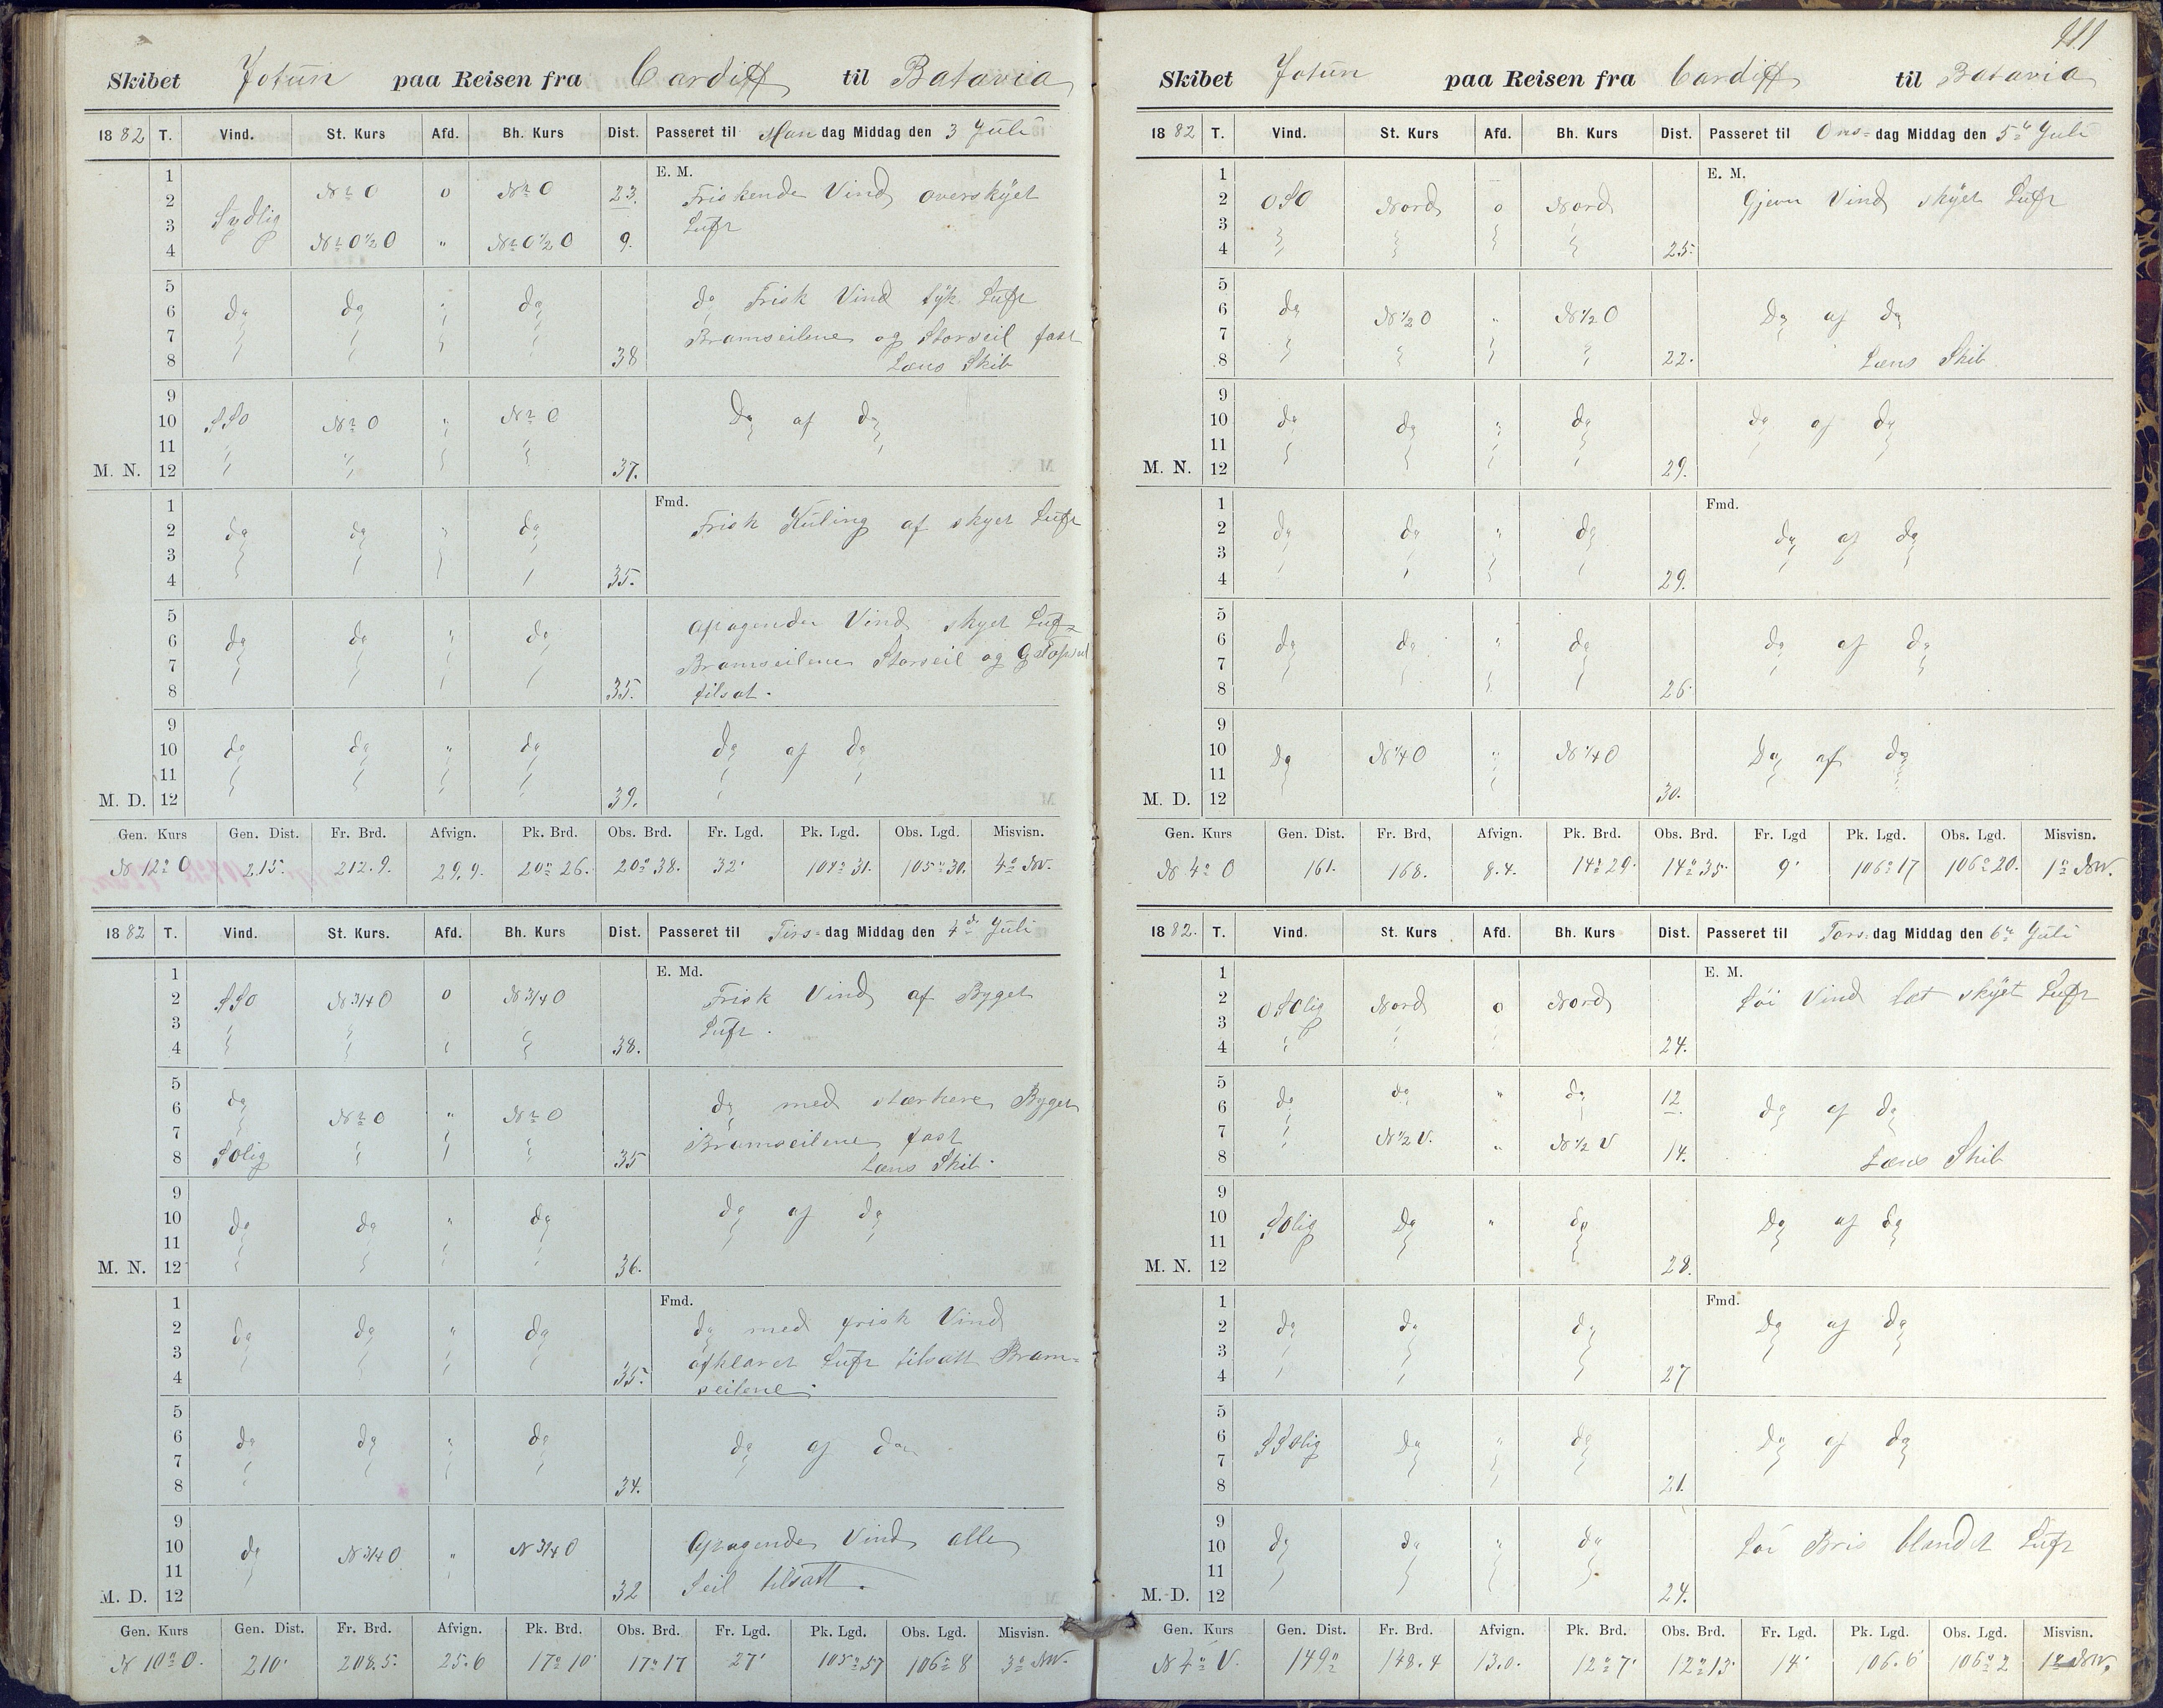 Skibet Jotun paa Reisen fra Cardiff til Batavia
1882 T. Vind. St. Kurs Afd. Bh. Kurs Dist. Passeret til Mandag Middag den 3 Juli
1 E. M.
2 Sydlig N t O o N t O 23. Friskende Vind overskyet
3 Luft
4 N t O ½ O " N t O ½ O 9.
5
6 do do " do do Frisk Vind tyk Luft
7 Bramseilene og Storseil fast
8 38 Læns Skib
9
10 SSO N t O " N t O do af do
11
M. N. 12 37.
1 Fmd.
2 do do " do Frisk Kuling af skyet Luft
3
4 35.
5 aftagende Vind skyet Luft
6 do do " do
7 Bramseilene Storseil og
8 35. tilsat.
9
10 do do " do do af do
11
M. D. 12 39.
Gen. Kurs Gen. Dist. Fr. Brd. Afvign. Pk. Brd. Obs. Brd. Fr. Lgd. Pk. Lgd. Obs. Lgd. Misvisn.
N 12° O 215. 212.9. 29.9. 20° 26. 20° 38. 32' 104° 31. 105° 30. 4° NW.
1882 T. Vind. St. Kurs. Afd. Bh. Kurs Dist. Passeret til Tirs=dag Middag den 4de Juli
1 E. Md.
2 SSO N ¾ O o N ¾ O Frisk Vind af Byget
3 Luft.
4 38.
5
6 do N t O " N t O do med stærkere Byger
7 Bramseilene fast
8 SOlig 35 Læns Skib.
9
10 do do " do do af do
11
M. N. 12 36.
1 Fmd.
2 do do " do do med frisk Vind
3 afklaret Luft tilsatt Bram=
4 35. seilene.
5
6 do do " do do af do
7
8 34.
9
10 do N ¾ O " N ¾ O Aftagende Vind alle
11
M. D. 12 32 Seil tilsatt.
Gen. Kurs Gen. Dist. Fr. Brd. Afvign. Pk. Brd. Obs. Brd. Fr. Lgd. Pk. Lgd. Obs. Lgd. Misvisn.
N 10° O. 210' 208.5. 25.6 17° 10' 17° 17 27' 105° 57 106° 8 3° NW.
211
Skibet Jotun paa Reisen fra Cardiff til Batavia
1882 T. Vind. St. Kurs Afd. Bh. Kurs Dist. Passeret til Ons=dag Middag den 5te Juli
1 E. M.
2 OSO Nord o Nord Gjevn Vind skyet Luft
3
4 25.
5
6 do N ½ O " N ½ O Do af do
7
8 22. Læns Skib
9
10 do do " do do af do
11
M. N. 12 29.
1 Fmd.
2 do do " do do af do
3
4 29.
5
6 do do " do do af do
7
8 26.
9
10 do N ¼ O " N ¼ O Do af do
11
M. D. 12 30.
Gen. Kurs Gen. Dist. Fr. Brd, Afvign. Pk. Brd. Obs. Brd. Fr. Lgd Pk. Lgd. Obs. Lgd. Misvisn.
N 4° O 161. 168. 8.4. 14° 29. 14° 35. 9' 106° 17 106° 20. 1° NW.
1882. T. Vind. St. Kurs Afd. Bh. Kurs Dist. Passeret til Tors.dag Middag den 6te Juli
1 E. M.
2 OSOlig Nord o Nord Løi Vind let skyet Luft
3
4 24.
5
6 do do " do 12 do af do
7 N ½ V. " N ½ V
8 14. Læns Skib
9
10 SOlig Do " do Do af do
11
M. N. 12 28.
1 Fmd.
2 do do do Do af do
3
4 27
5
6 SSOlig Do " do Do af do
7
8 21.
9
10 do do " do Løi Bris blandet Luft
11
M. D. 12 24.
Gen. Kurs Gen. Dist. Fr. Brd. Afvign. Pk. Brd. Obs. Brd. Fr. Lgd. Pk. Lgd. Obs. Lgd. Misvisn.
N 4° V. 149 148.4 13.0. 12° 7' 12° 13' 14' 106.6 106° 2 1° NW.